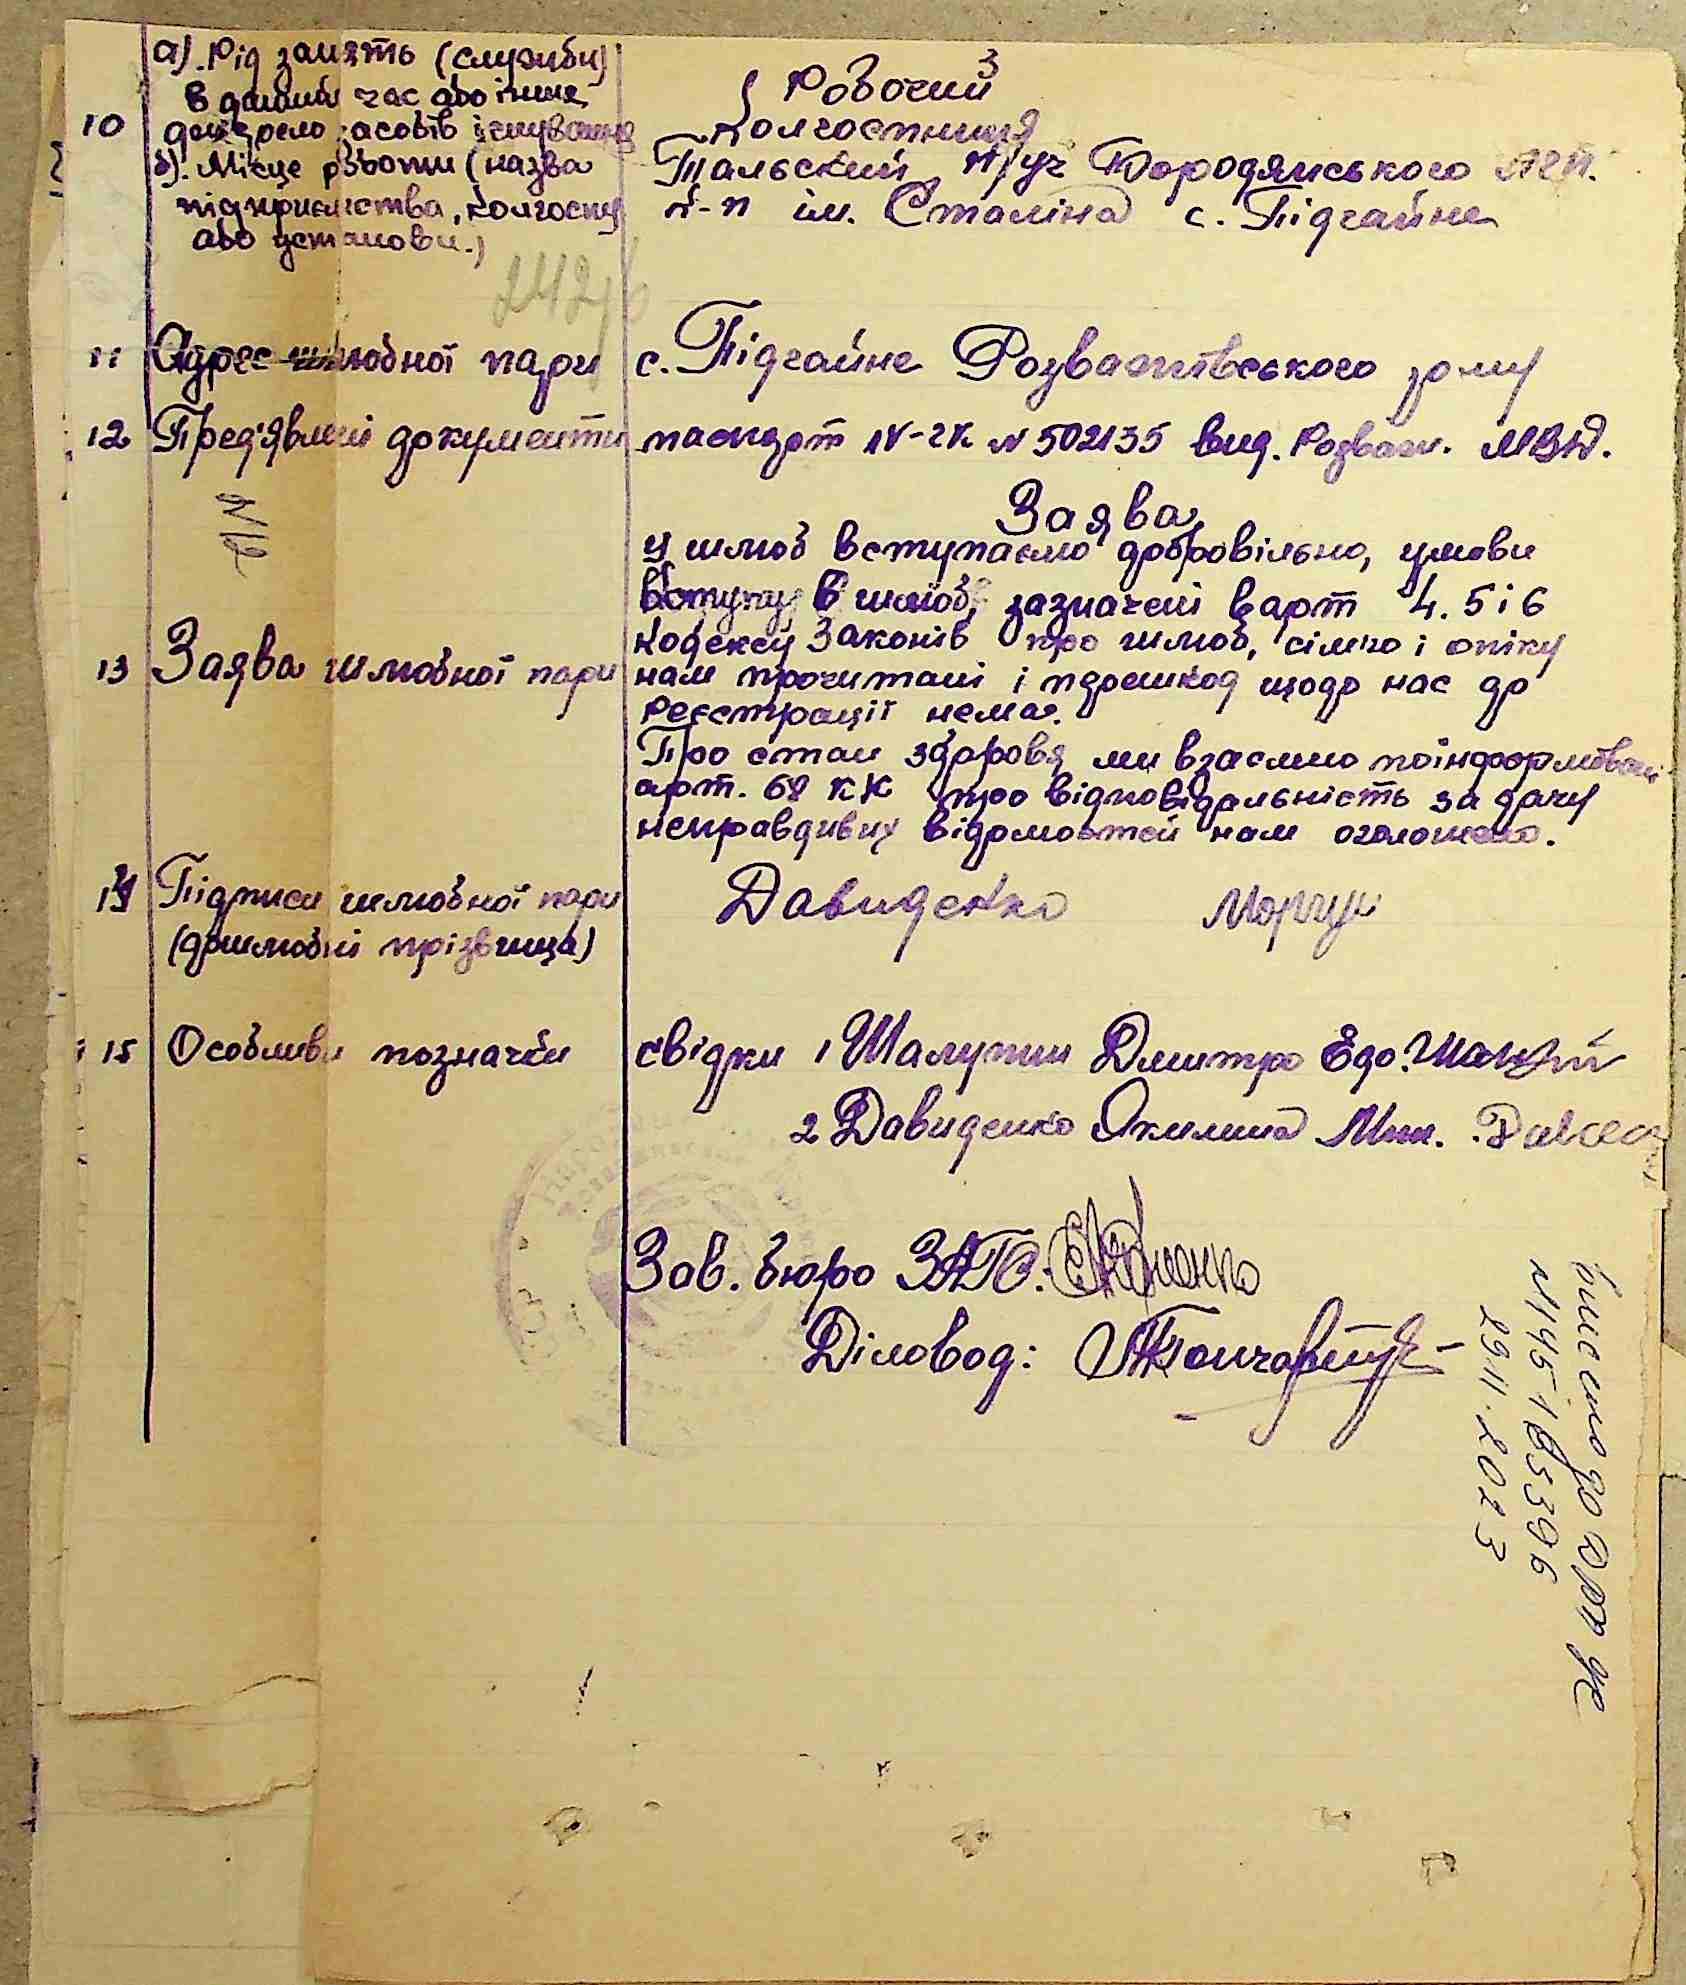 10
а). Рід занять (служби)
в даний час або інше
джерело засобів існування
б). Місце роботи (назва
підприємства, колгоспу
або установи.)
3
Робочий
Колгоспниця
Тальский Бородянського
к-п ім. Сталіна с. Підгайне
242
11 Адрес шлюбної пари
с. Підгайне Розважівського р-ну
12 Пред'явлені документи
паспорт IV-УК N 502135 вид. Розваж. МВД.
Заява
У шлюб вступаємо добровільно, умови
вступу в шлюб, зазначені в арт 4. 5 і 6
Кодексу Законів про шлюб, сім'ю і опіку
нам прочитані і перешкод щодо нас до
реєстрації нема.
Про стан здоровя ми взаємно поінформовані
арт. 68 КК про відповідальність за дачу
неправдивих відомостей нам оголошено.
13 Заява шлюбної пари
14 Підписи шлюбної пари
(дошлюбні прізвища)
Давиденко Моргун
15 Особливі позначки
свідки 1 Шалупин Дмитро
2 Давиденко Якилина Мик.
Зав. бюро ЗАГС:
Діловод: Гончарук
Внесено до
N 445
29.11.2023